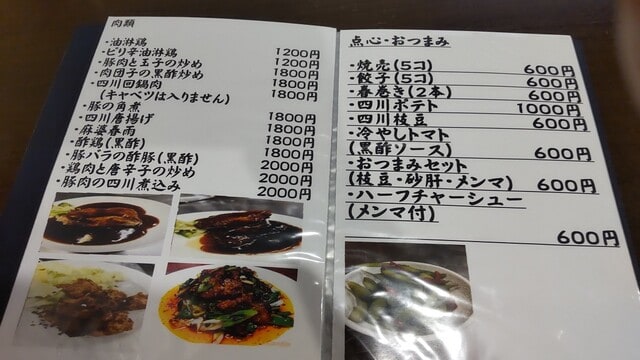 肉類
・油淋鶏
・ピリ辛油淋鶏 1200円
・豚肉と玉子の炒め 1200円
・肉団子の黒酢炒め 1800円
・四川回鍋肉 1800円
(キャベツは入りません) 1800円
・豚の角煮
・四川唐揚げ 1800円
・麻婆春雨 1800円
・酢鶏(黒酢) 1800円
・豚バラの酢豚(黒酢) 1800円
・鶏肉と唐辛子の炒め 2000円
・豚肉の四川煮込み 2000円
2000円
点心・おつまみ
・焼売(5コ) 600円
・餃子(5コ) 600円
・春巻き(2本) 600円
・四川ポテト 1000円
・四川枝豆 600円
・冷やしトマト
(黒酢ソース) 600円
・おつまみセット
(枝豆・砂肝・メンマ) 600円
・ハーフチャーシュー
(メンマ付)
600円